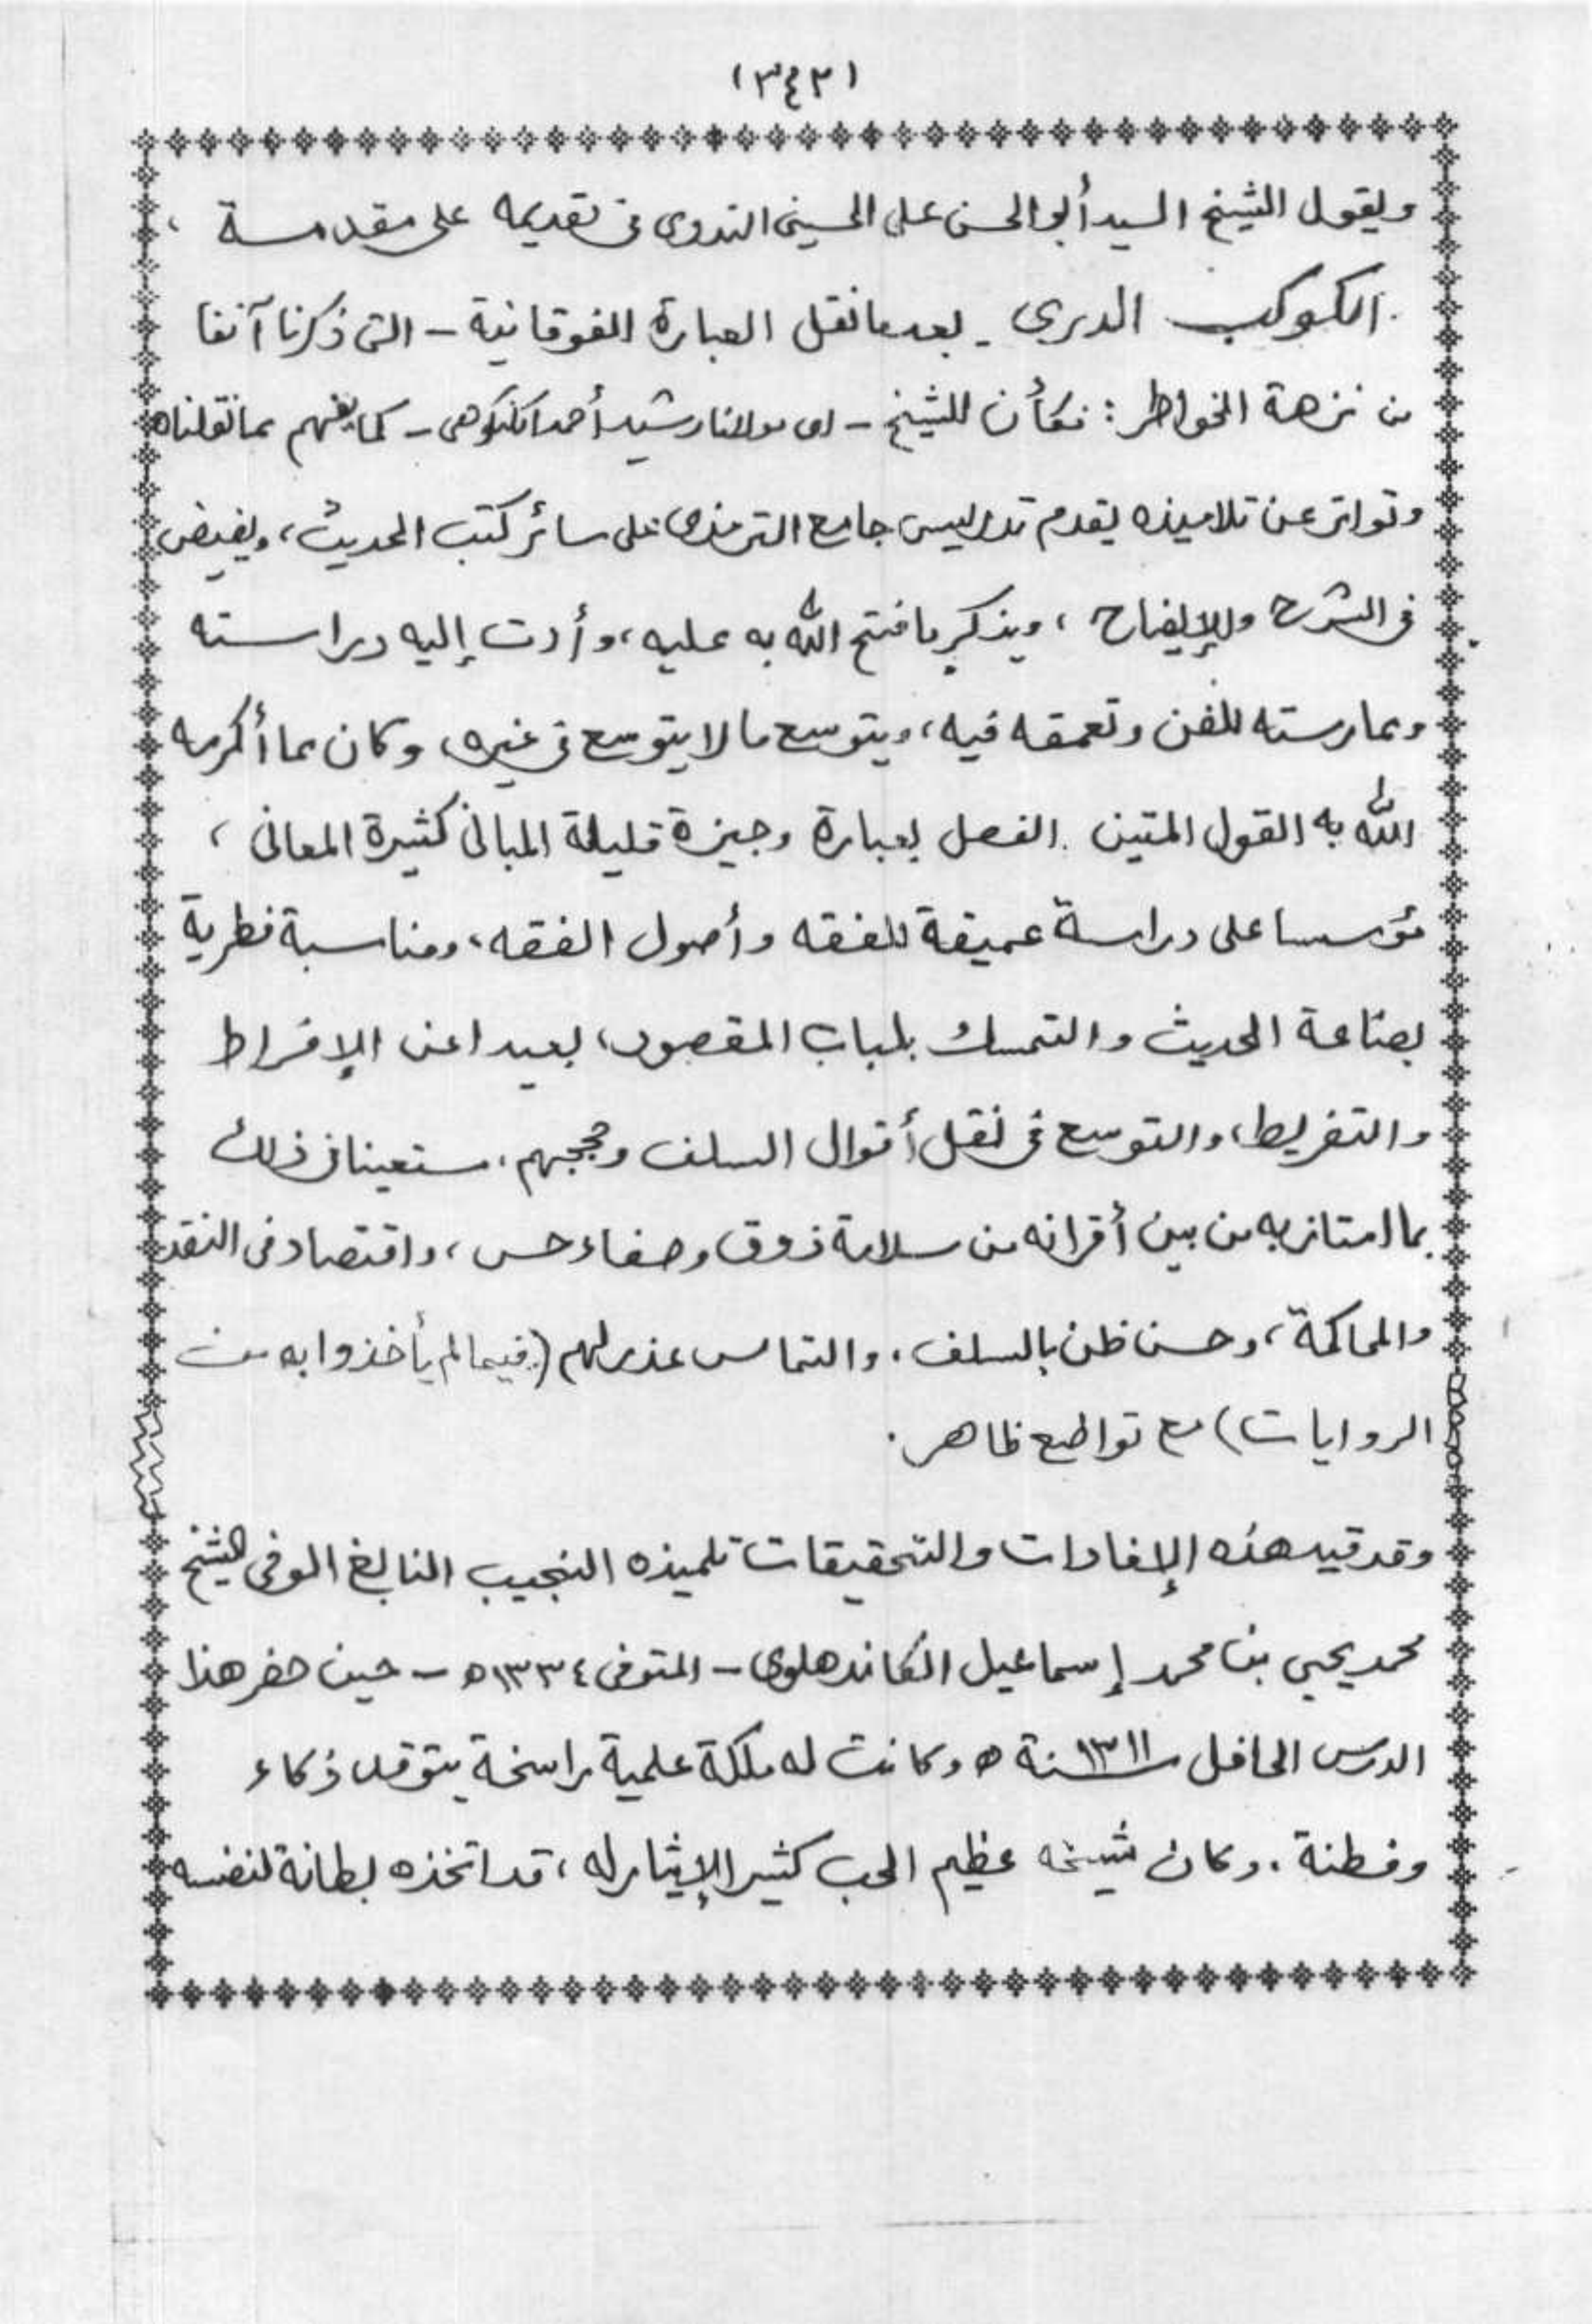 (٣٤٢)
ويقول الشيخ السيد أبو الحسن على الحسينى الندوى فى تقديمه على مقدمة
الكوكب الدرى - بعد ما نقل العبارة الفوقانية - التى ذكرنا آنفا
من نزهة الخواطر: فكأن للشيخ - اى مولانا رشيد أحمد الكنكوهى - كما يفهم مما نقلناه
وتواتر عن تلاميذه يقدم تدريس جامع الترمذى على سائر كتب الحديث، ويفيض
فى الشرح والإيضاح، ويذكر ما فتح الله به عليه، وأدت إليه دراسته
وممارسته للفن وتعمقه فيه، ويتوسع ما لا يتوسع فى غيره، وكان مما أكرمه
الله به القول المتين الفصل بعبارة وجيزة قليلة المبانى كثيرة المعانى،
مؤسسا على دراسة عميقة للفقه وأصول الفقه، ومناسبة فطرية
بصناعة الحديث والتمسك بلباب المقصود، بعيدا عن الإفراط
والتفريط، والتوسع فى نقل أقوال السلف وحججهم، مستعينا فى ذلك
بما امتاز به من بين أقرانه من سلامة ذوق وصفاء حس، واقتصاد فى النقد
والمحاكمة، وحسن ظن بالسلف، والتماس عذر لهم (فيما لم يأخذوا به من
الروايات) مع تواضع ظاهر.
وقد قيد هذه الإفادات والتحقيقات تلميذه النجيب النابغ الوفى الشيخ
محمد يحيى بن محمد إسماعيل الكاندهلوى - المتوفى ١٣٣٤ه - حين حضر هذا
الدرس الحافل سنة ١٣١١ه وكانت له ملكة علمية راسخة يتوقد ذكاء
وفطنة، وكان شيخه عظيم الحب كثير الإيثار له، قد اتخذه بطانة لنفسه